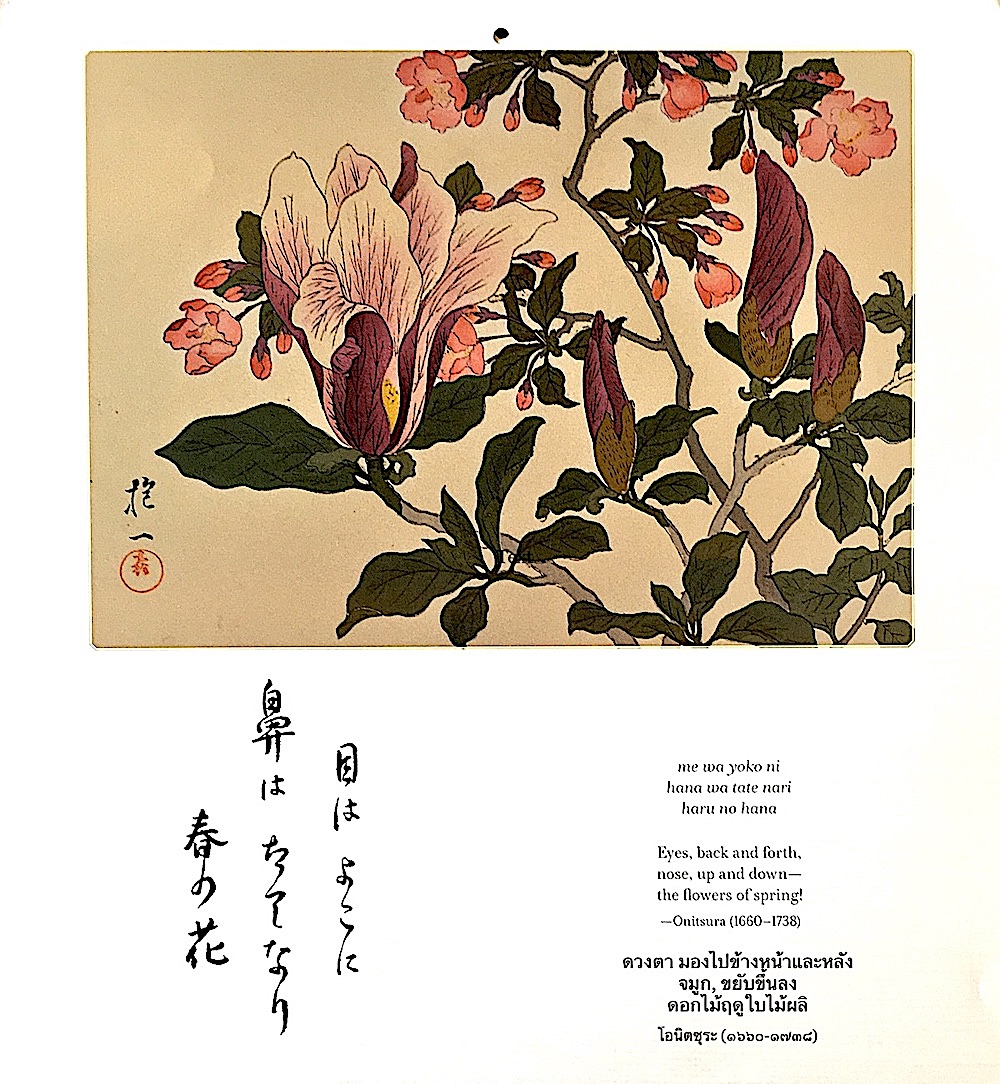 抱一
目は よこに
鼻は たてなり
春の花
me wa yoko ni
hana wa tate nari
haru no hana
Eyes, back and forth,
nose, up and down—
the flowers of spring!
—Onitsura (1660–1738)
ดวงตา มองไปข้างหน้าและหลัง
จมูก, ขยับขึ้นลง
ดอกไม้ฤดูใบไม้ผลิ
โอนิตซุระ (๑๖๖๐-๑๗๓๘)